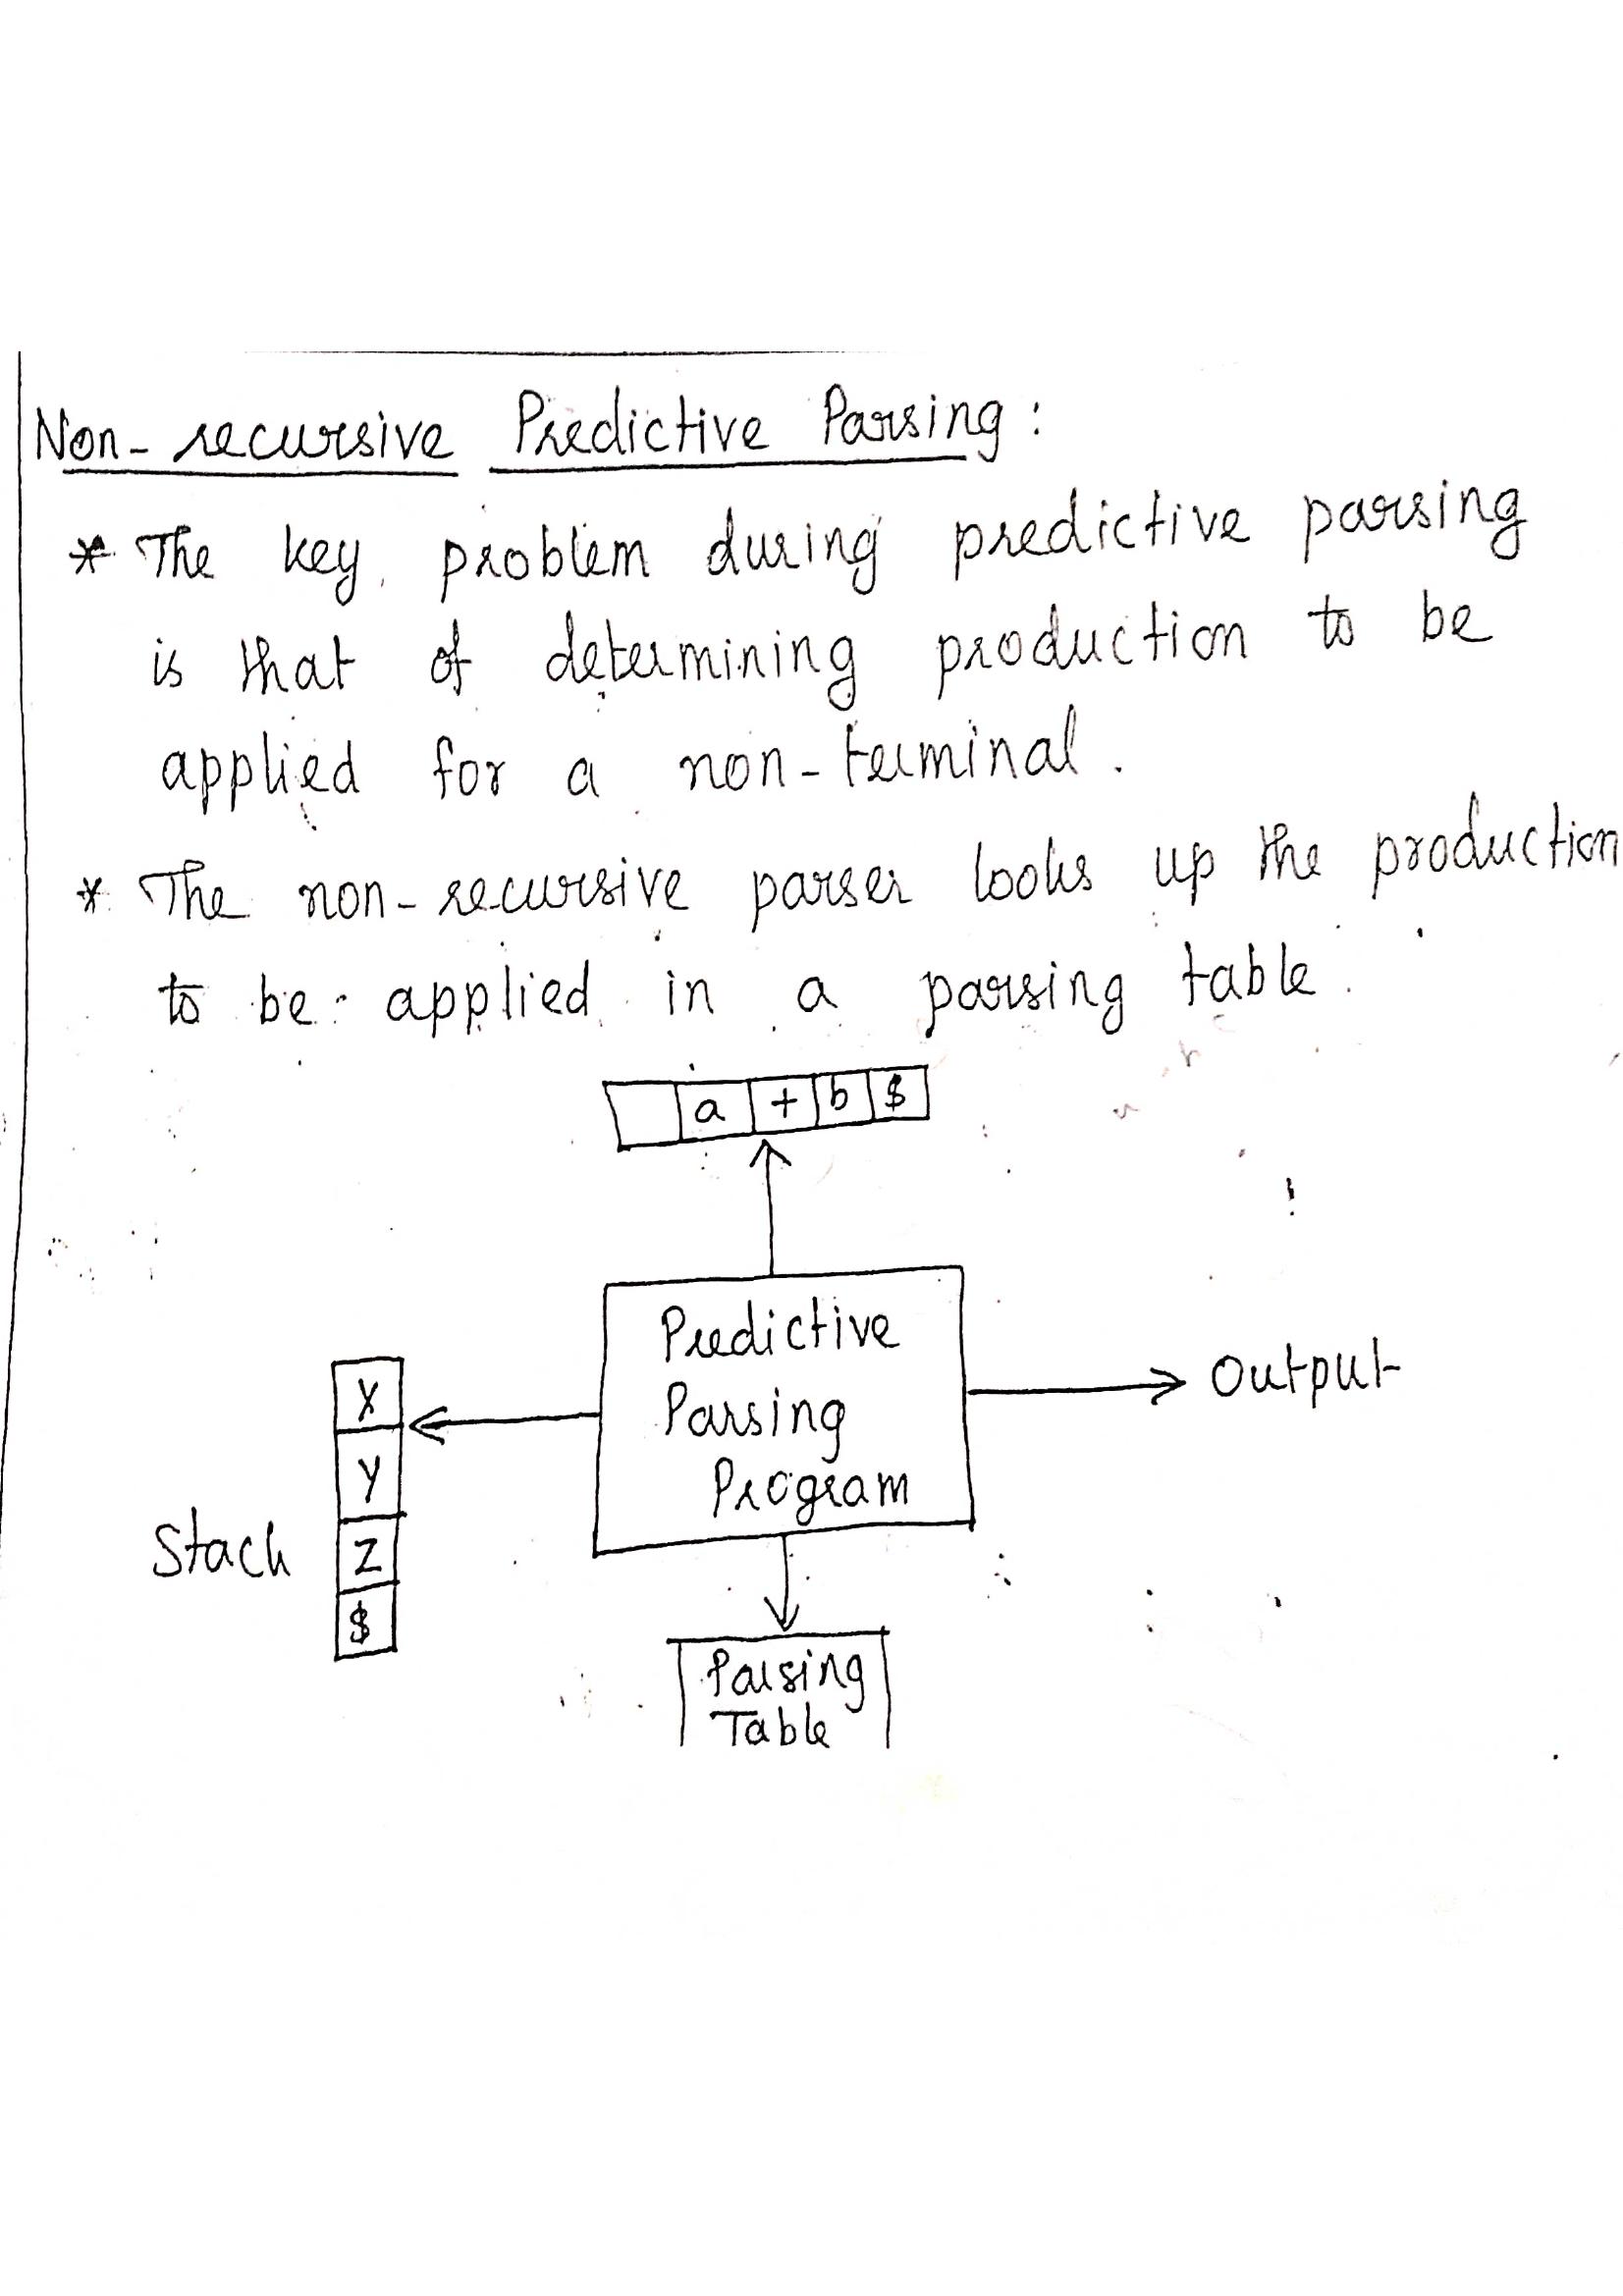 Non-recursive Predictive Parsing:
* The key problem during predictive parsing
is that of determining production to be
applied for a non-terminal.
* The non-recursive parser looks up the production
to be applied in a parsing table.
a + b $
Predictive
Parsing
Program
Output
X
Y
Stack Z
$
Parsing
Table